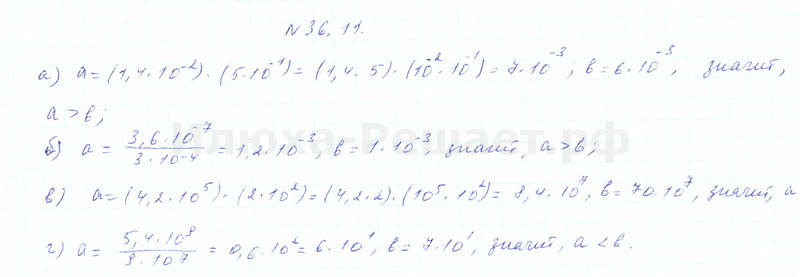 N 36,11.
а) a = (1,4·10⁻²)·(5·10⁻¹) = (1,4·5)·(10⁻²·10⁻¹) = 7·10⁻³; b = 6·10⁻³, значит,
a > b;
Илюха-Решает.рф
б) a = 3,6·10⁻⁷ / 3·10⁻⁴ = 1,2·10⁻³, b = 1·10⁻³, значит, a > b;
в) a = (4,2·10⁵)·(2·10²) = (4,2·2)·(10⁵·10²) = 8,4·10⁷, b = 70·10⁷, значит, a
г) a = 5,4·10⁹ / 9·10⁷ = 0,6·10² = 6·10¹, b = 7·10¹, значит, a < b.